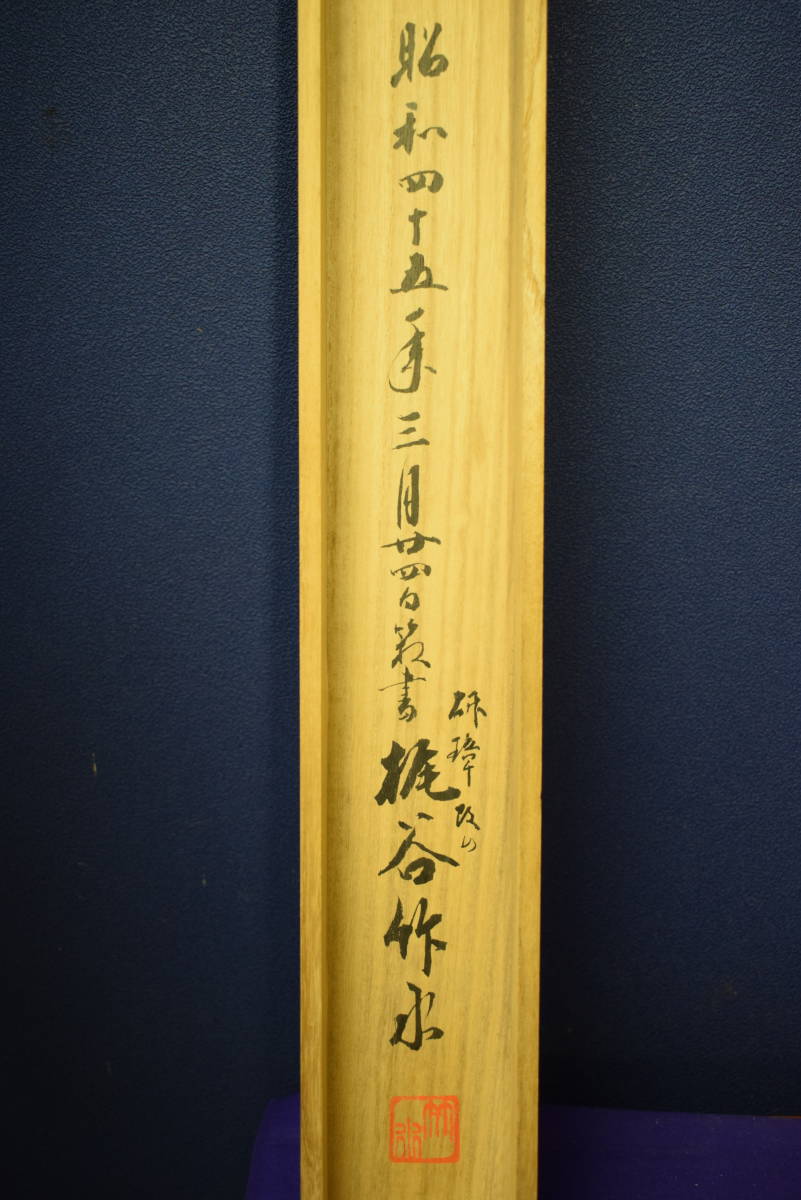 昭和四十五年三月廿四日箱書
璋改め
梶谷竹水
竹水